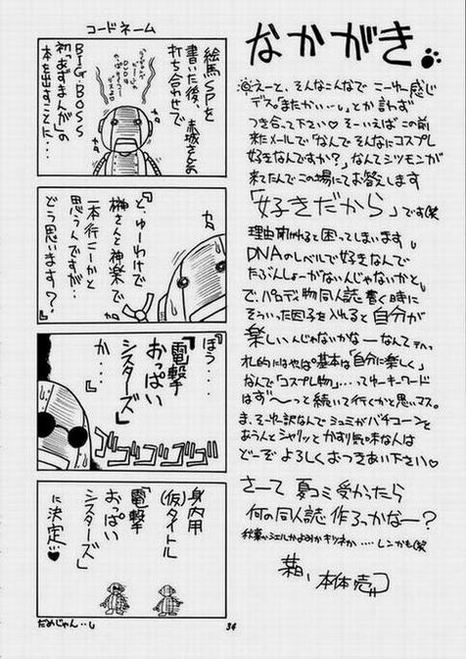 なかがき
えーと、そんなこんなで こーゆー感じ
デス。またかい…。とか言わず
つき合って下さい♡ そーいえば この前
来たメールで「なんで そんなにコスプレ
好きなんですか?」なんてシツモンが
来てたんで この場にてお答えします
「好きだから」です(笑
理由聞かれると困ってしまいます。
DNAのレベルで好きなんで
たぶんしょーがないんじゃないかと。
で、パロディ物同人誌 書く時に
そういった因子を入れると 自分が
楽しいんじゃないかなーなんて
基本は「自分に楽しく」
なんで「コスプレ物」…ってゆーキーワード
はず〜っと続いて行くかと思いマス。
ま、そーゆー訳なんで シュミがバチコーンと
あう人と シャリッと かすり気味な人は
どーぞ よろしくおつきあい下さい♡
さーて 夏コミ受かったら
何の同人誌 作ろっかなー?
本体売
コードネーム
絵馬SPを
書いた後、赤城さんと
打ち合わせで
BIG BOSS
初「あずまんが」の
本を出すことに…
『と、ゆーわけで
榊さんと神楽で
一本行こーかと
思うんですが…
どう思います?』
『ほう…
『電撃
おっぱい
シスターズ』
か…』
ゴゴゴゴゴゴ
身内用
(仮)タイトル
『電撃
おっぱい
シスターズ』
に決定…♡
だめじゃん…。
34